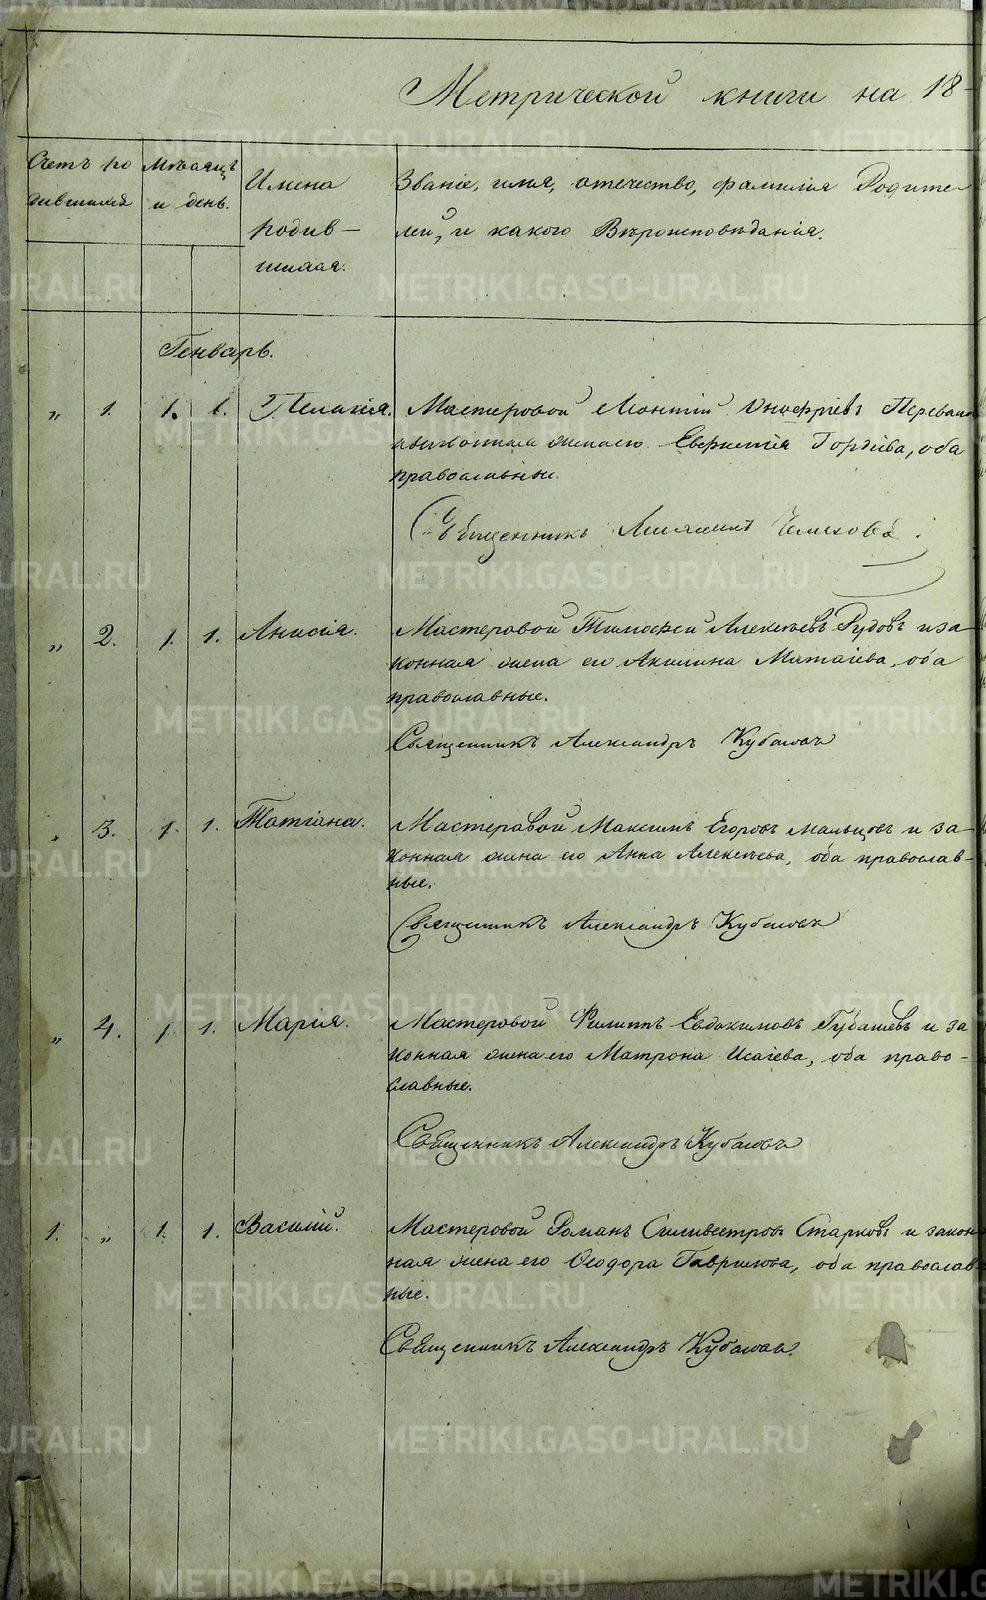 Метрической книги на 18
Счетъ ро
дившихся
Мѣсяцъ
и день.
Имена
родив-
шихся.
Званіе, имя, отечество, фамилія Родите-
лей, и какого Вѣроисповѣданія.
Генварь.
„ 1. 1. 1. Пелагія. Мастеровой Леонтій Онофріевъ
законная жена его Гордѣева, оба
православные.
Священникъ
„ 2. 1. 1. Анисія. Мастеровой Тимофей Алексѣевъ Рудовъ и за-
конная жена его Акилина Матвіева, оба
православные.
Священникъ Александръ
„ 3. 1. 1. Татіана. Мастеровой Максимъ Егоровъ Мальцовъ и за-
конная жена его Анна Алексѣева, оба православ-
ные.
Священникъ Александръ
„ 4. 1. 1. Марія. Мастеровой Филиппъ Евдокимовъ Губашевъ и за
конная жена его Матрона Исаіева, оба право-
славные.
Священникъ Александръ
1. „ 1. 1. Василій. Мастеровой Романъ Сильвестровъ Старковъ и закон
ная жена его Ѳеодора Гаврилова, оба православ
ные.
Священникъ Александръ
METRIKI.GASO-URAL.RU